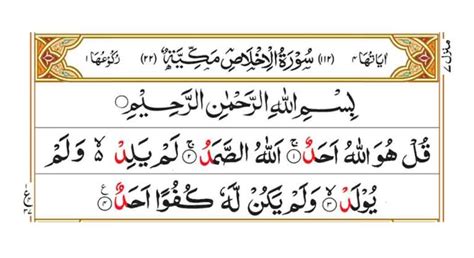 اٰیَاتُهَا ۴ (۱۱۲) سُوْرَةُ الْاِخْلَاصِ مَكِّیَّةٌ (۲۲) رُكُوْعُهَا ۱
منزل ۷
بِسْمِ اللّٰهِ الرَّحْمٰنِ الرَّحِیْمِ
قُلْ هُوَ اللّٰهُ اَحَدٌ ۚ۝۱ اَللّٰهُ الصَّمَدُ ۚ۝۲ لَمْ یَلِدْ ۙ۬ وَ لَمْ
یُوْلَدْ ۙ۝۳ وَ لَمْ یَكُنْ لَّهٗ كُفُوًا اَحَدٌ ۝۴ ع